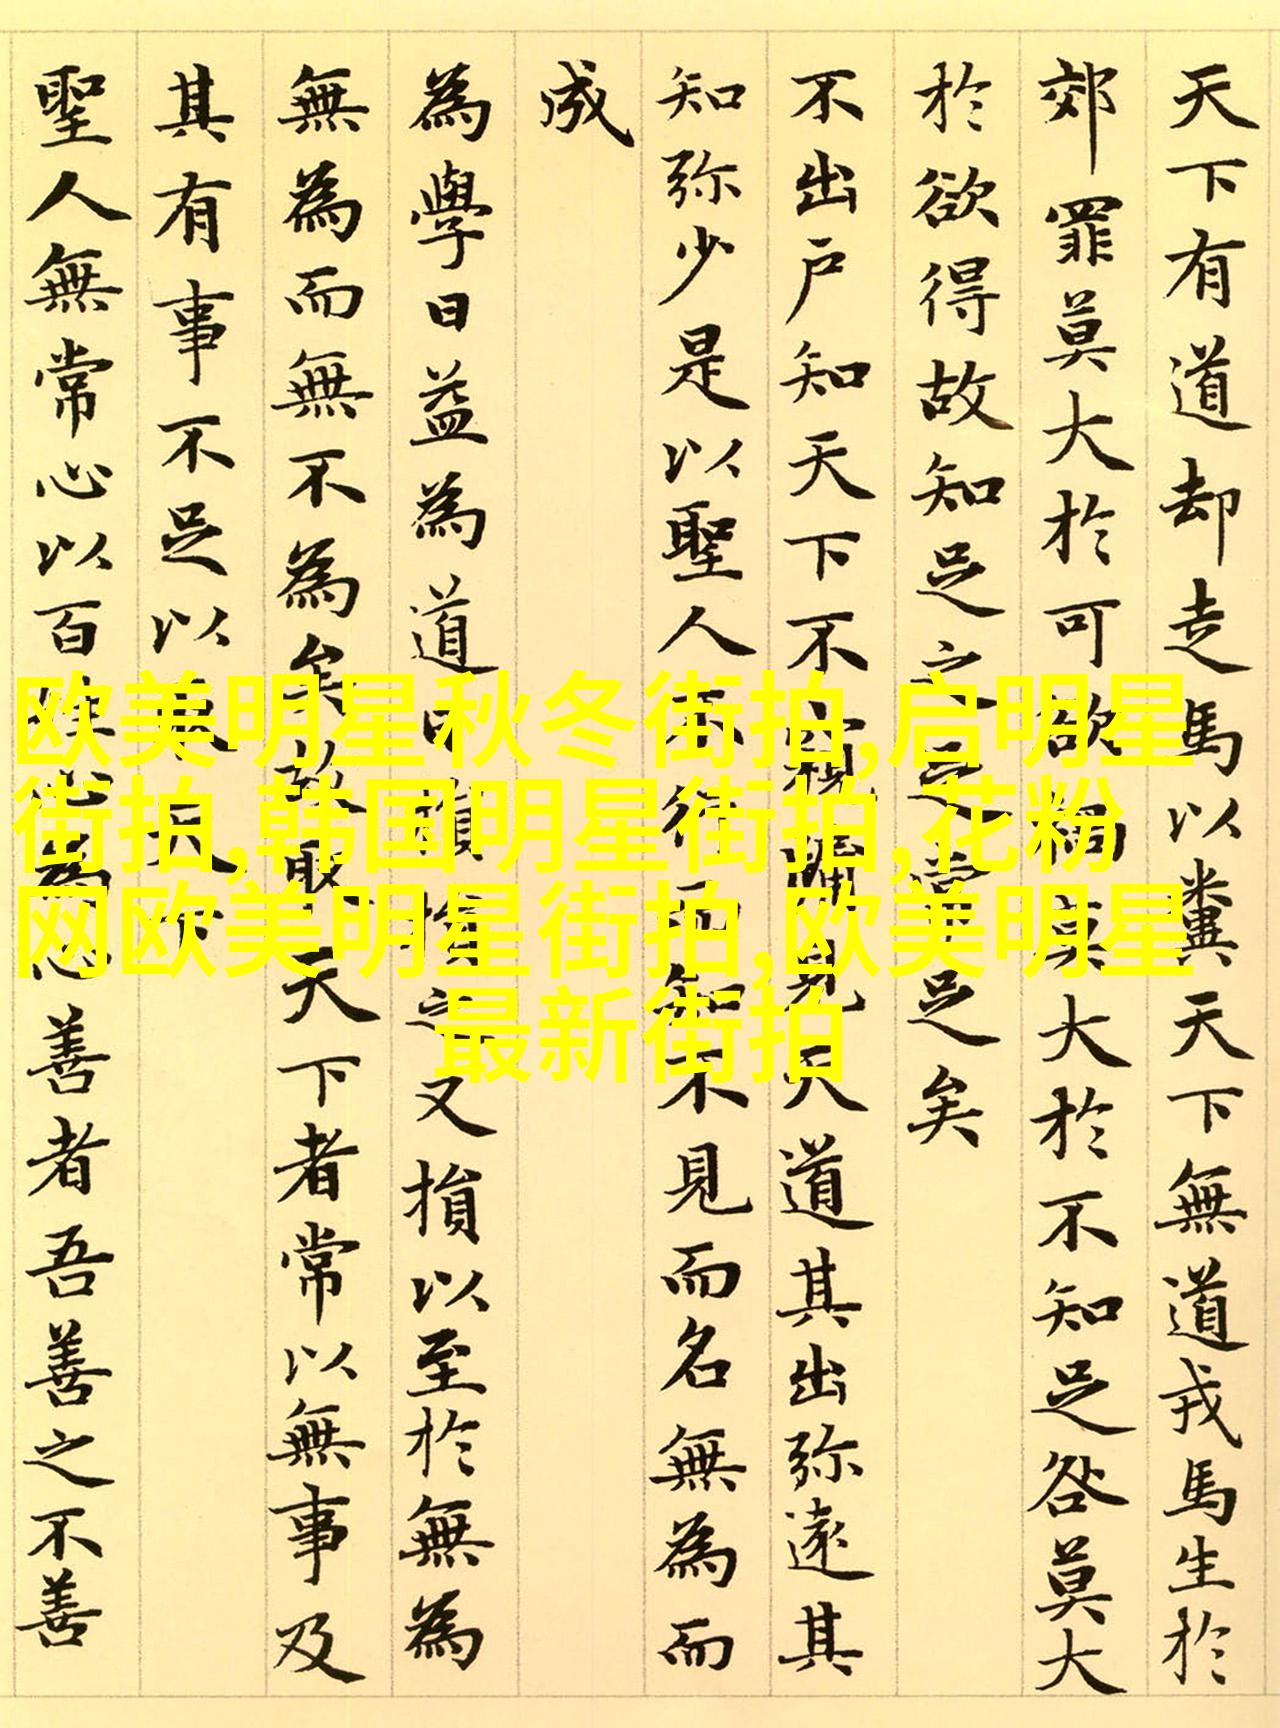 天下有道却走馬以糞天下無道戎馬生於
郊罪莫大於可欲禍莫大於不知足咎莫大
於欲得故知足之足常足矣
不出戶知天下不窺牖見天道其出弥遠其
知弥少是以聖人不行而知不見而名無為而
成
為學日益為道日損損之又損以至於無為
無為而無不為矣故取天下者常以無事及
其有事不足以取天下
聖人無常心以百姓心為心善者吾善之不善
欧美明星秋冬街拍,启明星
街拍,韩国明星街拍,花粉
网欧美明星街拍,欧美明星
最新街拍